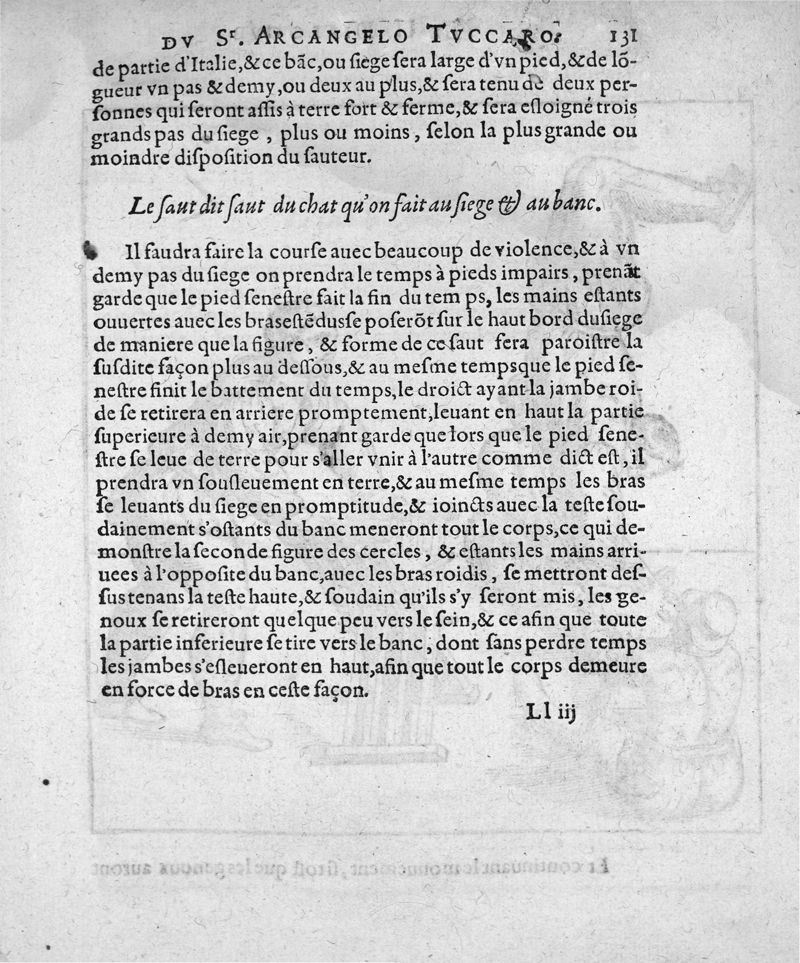 DV Sr. ARCANGELO TVCCARO. 131
de partie d'Italie,&ce bãc,ou ſiege ſera large d'vn pied,&de lõ-
gueur vn pas &demy,ou deux au plus,& ſera tenu de deux per-
ſonnes qui ſeront aſſis à terre fort & ferme,& ſera eſloigné trois
grands pas du ſiege, plus ou moins, ſelon la plus grande ou
moindre diſpoſition du ſauteur.
Le ſaut dit ſaut du chat qu'on fait au ſiege & au banc.
Il faudra faire la courſe auec beaucoup de violence,& à vn
demy pas du ſiege on prendra le temps à pieds impairs, prenãt
garde que le pied ſeneſtre fait la fin du tem ps, les mains eſtants
ouuertes auec les braseſtẽdusſe poſerõt ſur le haut bord duſiege
de maniere que la figure, & forme de ce ſaut ſera paroiſtre la
ſuſdite façon plus au deſſous,& au meſme tempsque le pied ſe-
neſtre finit le battement du temps,le droict ayant la jambe roi-
de ſe retirera en arriere promptement,leuant en haut la partie
ſuperieure à demy air,prenant garde que lors que le pied ſene-
ſtre ſe leue de terre pour s'aller vnir à l'autre comme dict eſt, il
prendra vn ſouſleuement en terre,& au meſme temps les bras
ſe leuants du ſiege en promptitude,& ioincts auec la teſte ſou-
dainement s'oſtants du banc meneront tout le corps,ce qui de-
monſtre la ſeconde figure des cercles, & eſtants les mains arri-
uees à l'oppoſite du banc,auec les bras roidis, ſe mettront deſ-
ſus tenans la teſte haute,& ſoudain qu'ils s'y ſeront mis, les ge-
noux ſe retireront quelque peu vers le ſein,& ce afin que toute
la partie inferieure ſe tire vers le banc, dont ſans perdre temps
les jambes s'eſleueront en haut,afin que tout le corps demeure
en force de bras en ceſte façon.
Ll iij